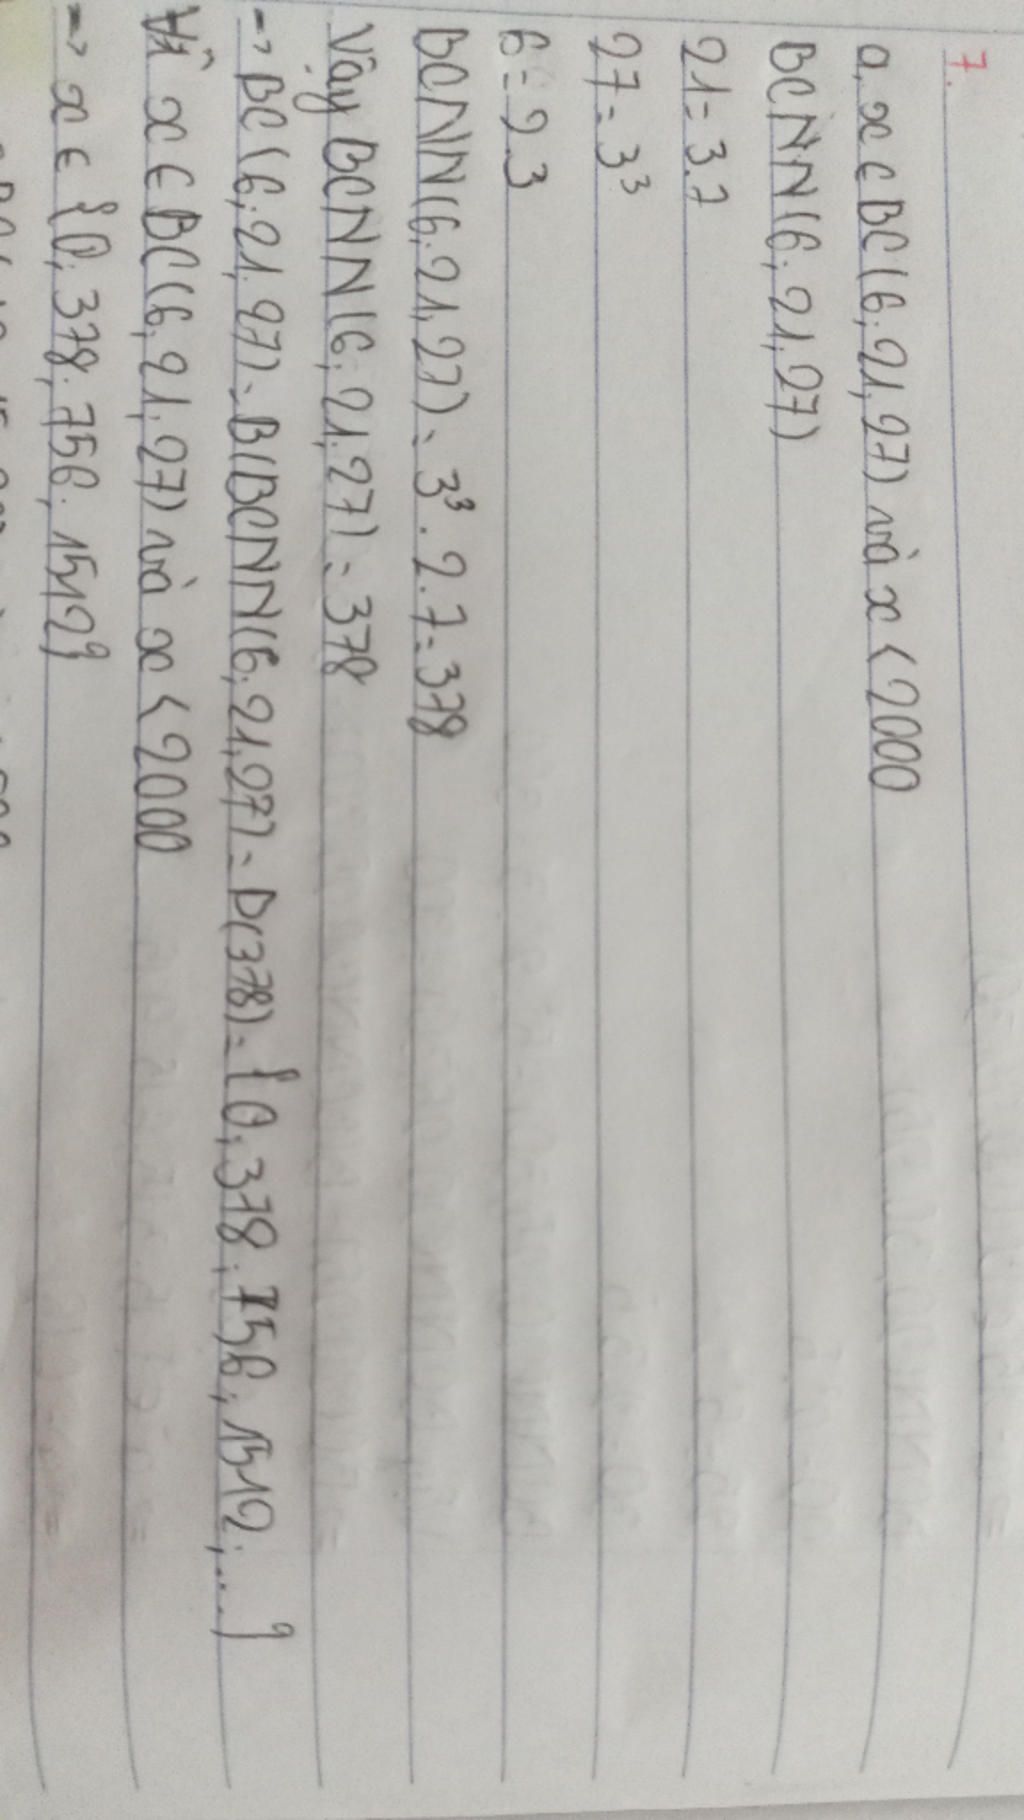 7.
a, x ∈ BC(6; 21; 27) và x < 2000
BCNN(6; 21; 27)
21 = 3.7
27 = 3³
6 = 2.3
BCNN(6; 21; 27) = 3³ . 2 . 7 = 378
Vậy BCNN(6; 21; 27) = 378
→ BC(6; 21; 27) = B(BCNN(6; 21; 27) = B(378) = {0; 378; 756; 1512; ...}
Vì x ∈ BC(6; 21; 27) và x < 2000
→ x ∈ {0; 378; 756; 1512}